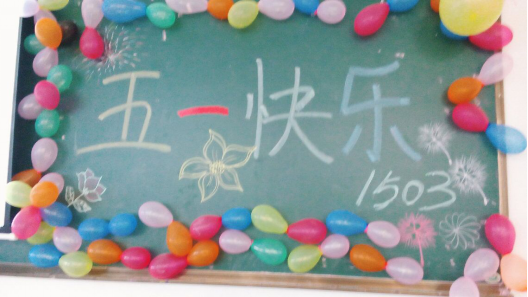 五一快乐
1503